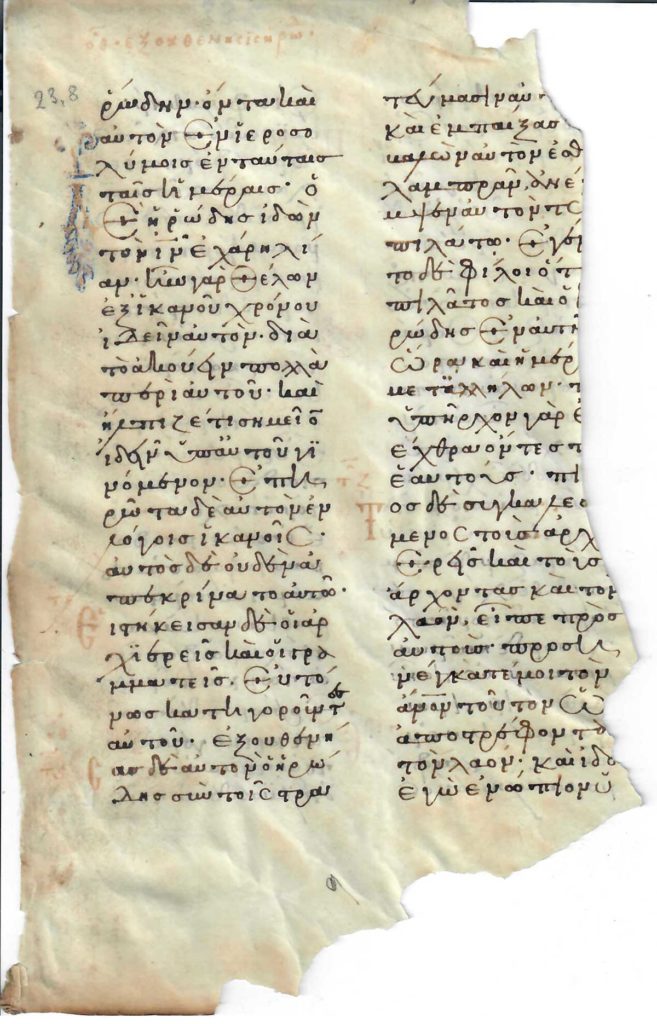 23,8
ρώδην· ὄντα καὶ
αὐτὸν ἐν ἱεροσο
λύμοις ἐν ταύταις
ταῖς ἡμέραις· ὁ
δὲ ἡρώδης ἰδὼν
τὸν ἰν ἐχάρη λί
αν· ἦν γὰρ θέλων
ἐξ ἱκανοῦ χρόνου
ἰδεῖν αὐτὸν· διὰ
τὸ ἀκούειν πολλὰ
περὶ αὐτοῦ· καὶ
ἤλπιζέ τι σημεῖον
ἰδεῖν ὑπ' αὐτοῦ γι
νόμενον· ἐπη
ρώτα δὲ αὐτὸν ἐν
λόγοις ἱκανοῖς·
αὐτὸς δὲ οὐδὲν ἀ
πεκρίνατο αὐτῶ·
ειστήκεισαν δὲ οἱ ἀρ
χιερεῖς καὶ οἱ γρα
μματεῖς· εὐτό
νως κατηγοροῦντες
αὐτοῦ· ἐξουθενή
σας δὲ αὐτὸν ὁ ἡρώ
δης σὺν τοῖς στρα
τεύμασιν αὐ
καὶ ἐμπαίξας
βαλὼν αὐτὸν ἐσθ
λαμπρὰν, ἀνέ
μψεν αὐτὸν τῶ
πιλάτω· ἐγέν
το δὲ φίλοι ὅ τ
πιλᾶτος καὶ ὁ
ρώδης ἐν αὐτῆ
ὥρα καὶ ἡμέρ
μετ' ἀλλήλων· π
ὑπῆρχον γὰρ ἐ
ἔχθρα ὄντες π
ἑαυτοὺς· πι
τος δὲ συγκαλεσ
μενος τοὺς ἀρχ
ερεῖς καὶ τοὺς
ἄρχοντας καὶ τὸν
λαὸν, εἶπε πρὸς
αὐτούς· προσή
νέγκατέ μοι τὸν
ἄνον τοῦτον ὡ
ἀποστρέφοντα
τὸν λαόν· καὶ ἰδο
ἐγὼ ἐνώπιον ὑ